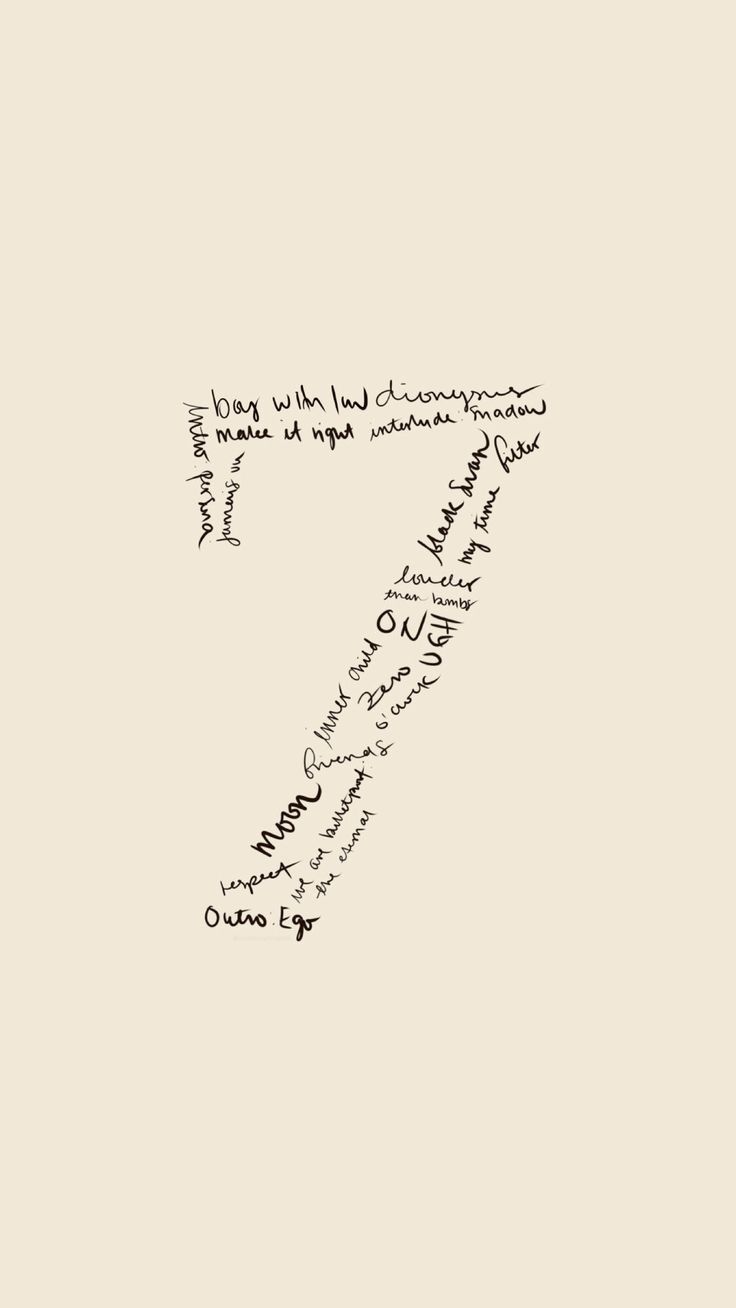 boy with luv dionysus
make it right interlude: shadow
intro: persona
jamais vu
black swan
filter
my time
louder
than bombs
ON
UGH
inner child
zero
o'clock
friends
moon
we are bulletproof:
the eternal
respect
Outro: Ego